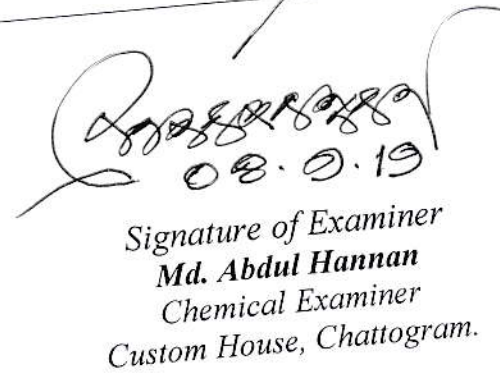 Signature of Examiner
Md. Abdul Hannan
Chemical Examiner
Custom House, Chattogram.